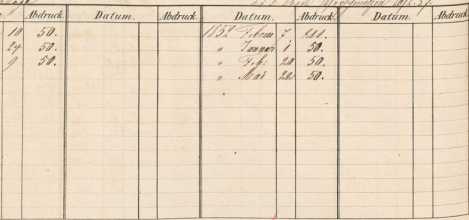 Abdruck. Datum. Abdruck. Datum. Abdruck. Datum. Abdruck.
10 50. 1852 Februar 7. 200.
24 50. " Januar 1 50.
9 50. " Feb. 20 50.
" Mai 20. 50.